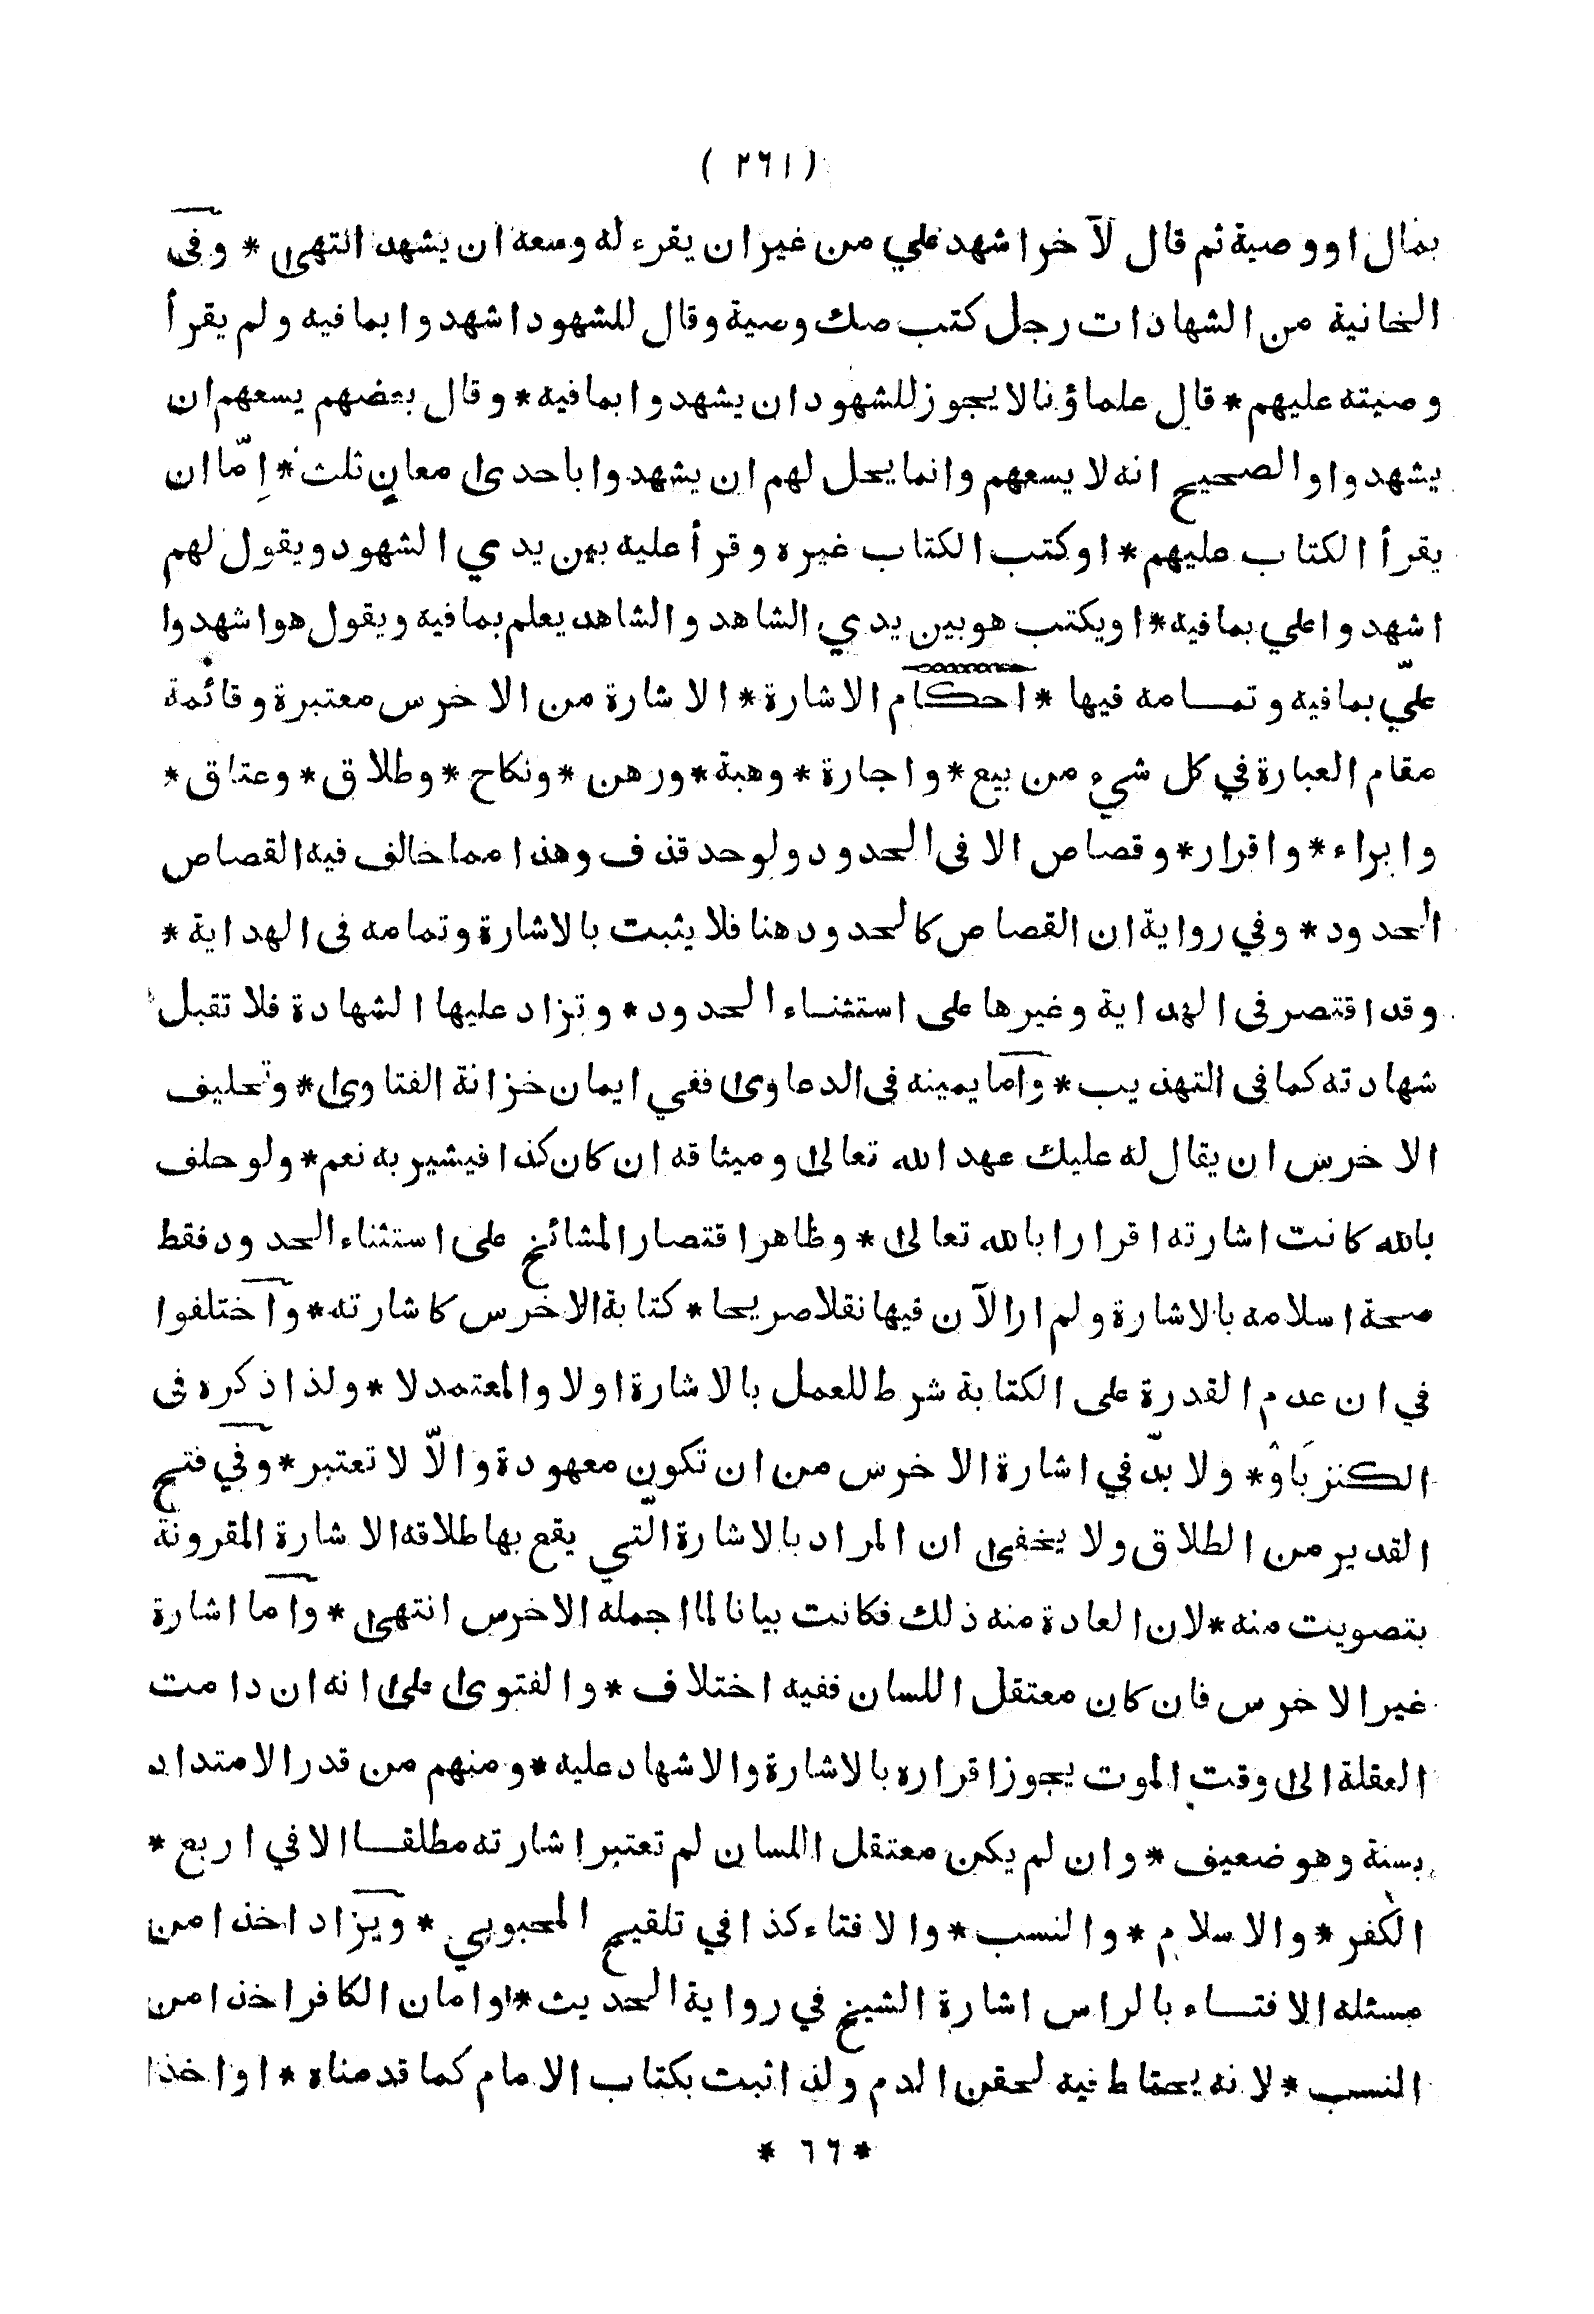 ( ٢٦١ )
بمال او وصية ثم قال لآخر اشهد علي من غير ان يقرء له وسعه ان يشهد انتهى * وفى
الخانية من الشهادات رجل كتب صك وصية وقال للشهود اشهدوا بما فيه ولم يقرأ
وصيته عليهم * قال علماؤنا لا يجوز للشهود ان يشهدوا بما فيه * وقال بعضهم يسعهم ان
يشهدوا والصحيح انه لا يسعهم وانما يحل لهم ان يشهدوا باحدى معانٍ ثلث * اِمّا ان
يقرأ الكتاب عليهم * او كتب الكتاب غيره وقرأ عليه بين يدي الشهود ويقول لهم
اشهدوا علي بما فيه * او يكتب هو بين يدي الشاهد والشاهد يعلم بما فيه ويقول هو اشهدوا
عليّ بما فيه وتمامه فيها * احكام الاشارة * الاشارة من الاخرس معتبرة وقائمة
مقام العبارة في كل شيء من بيع * واجارة * وهبة * ورهن * ونكاح * وطلاق * وعتاق *
وابراء * واقرار * وقصاص الا فى الحدود ولو حد قذف وهذا مما خالف فيه القصاص
الحدود * وفي رواية ان القصاص كالحدود هنا فلا يثبت بالاشارة وتمامه فى الهداية *
وقد اقتصر فى الهداية وغيرها على استثناء الحدود * وتزاد عليها الشهادة فلا تقبل
شهادته كما فى التهذيب * واما يمينه فى الدعاوى ففي ايمان خزانة الفتاوى * وتحليف
الاخرس ان يقال له عليك عهد الله تعالى وميثاقه ان كان كذا فيشير به نعم * ولو حلف
بالله كانت اشارته اقرارا بالله تعالى * وظاهر اقتصار المشائخ على استثناء الحدود فقط
صحة اسلامه بالاشارة ولم ار الآن فيها نقلا صريحا * كتابة الاخرس كاشارته * واختلفوا
في ان عدم القدرة على الكتابة شرط للعمل بالاشارة اولا والمعتمد لا * ولذا ذكره فى
الكنز بَاوْ * ولا بدّ في اشارة الاخرس من ان تكون معهودة والّا لا تعتبر * وفي فتح
القدير من الطلاق ولا يخفى ان المراد بالاشارة الّتي يقع بها طلاقه الاشارة المقرونة
بتصويت منه * لان العادة منه ذلك فكانت بيانا لما اجمله الاخرس انتهى * واما اشارة
غير الاخرس فان كان معتقل اللسان ففيه اختلاف * والفتوى على انه ان دامت
العقلة الى وقت الموت يجوز اقراره بالاشارة والاشهاد عليه * ومنهم من قدر الامتداد
بسنة وهو ضعيف * وان لم يكن معتقل اللسان لم تعتبر اشارته مطلقا الا في اربع *
الكفر * والاسلام * والنسب * والافتاء كذا في تلقيح المحبوبي * ويزاد اخذا من
مسئلة الافتاء بالراس اشارة الشيخ في رواية الحديث * وامان الكافر اخذا من
النسب * لانه يحتاط فيه لحقن الدم ولذا ثبت بكتاب الامام كما قدمناه * او اخذا
* ٦٦ *